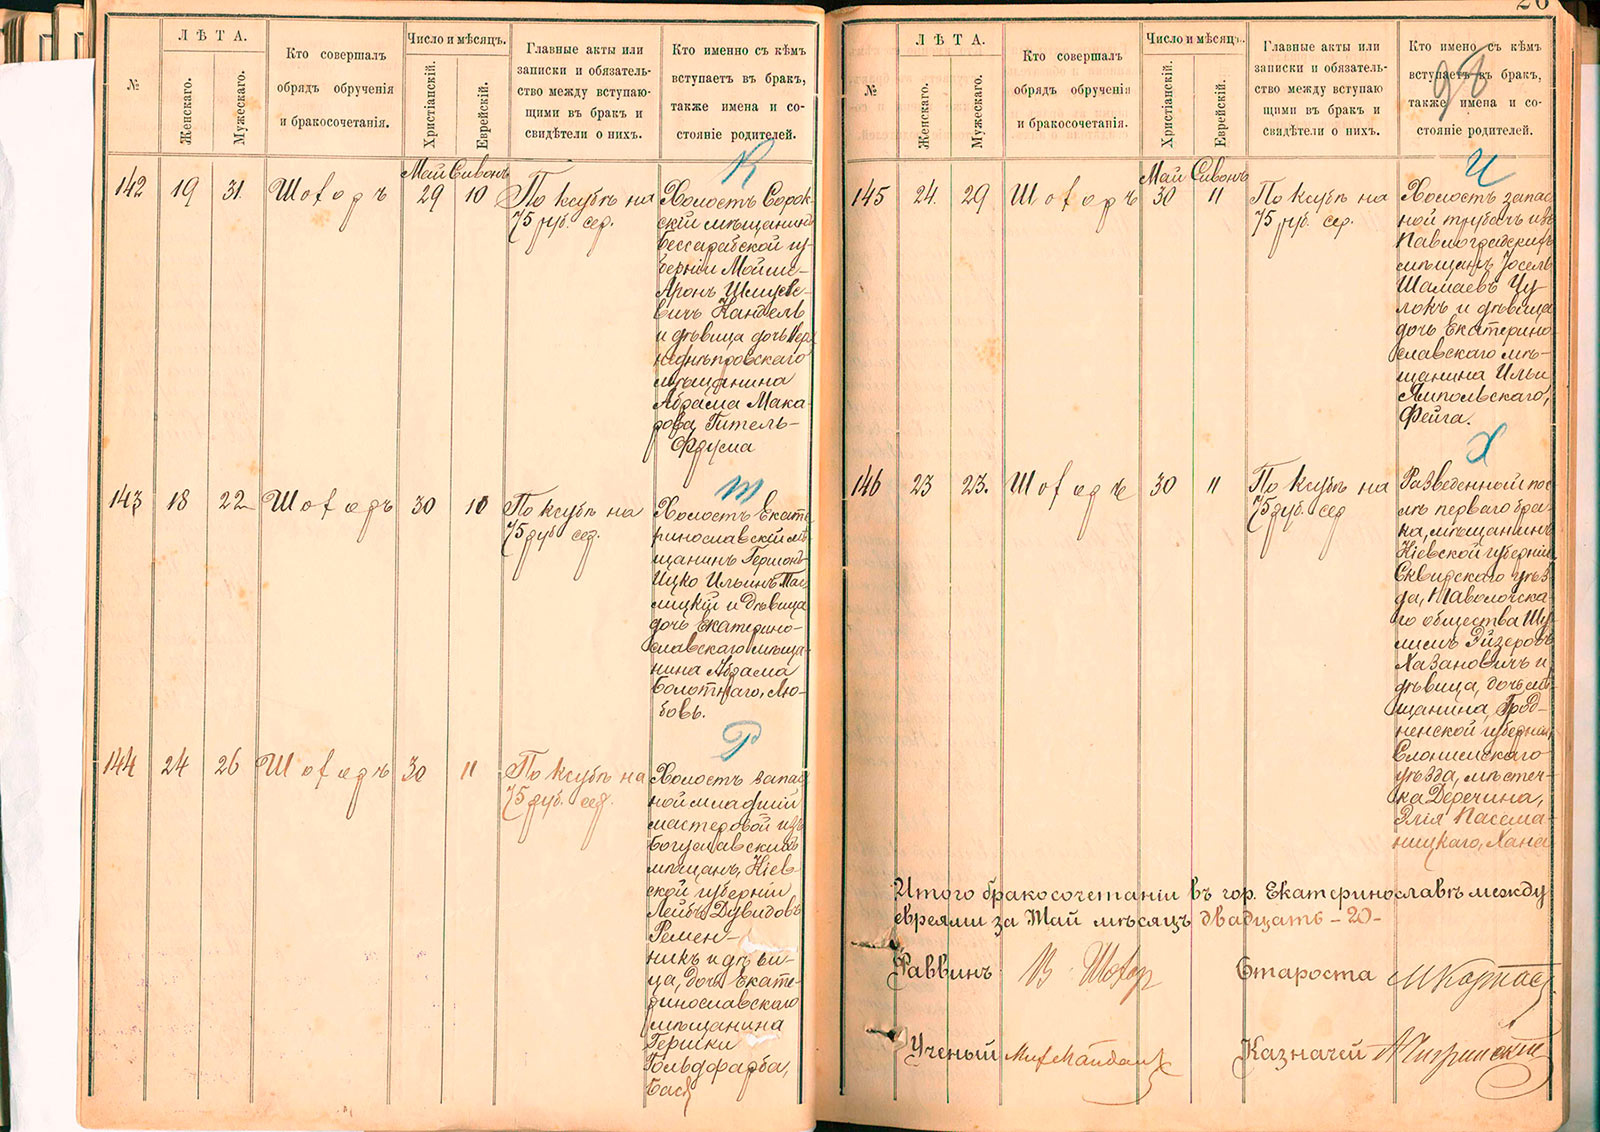 №
ЛѢТА.
Женскаго.
Мужескаго.
Кто совершалъ
обрядъ обрученія
и бракосочетанія.
Число и мѣсяцъ.
Христіанскій.
Еврейскій.
Главные акты или
записки и обязатель-
ство между вступаю-
щими въ бракъ и
свидѣтели о нихъ.
Кто именно съ кѣмъ
вступаетъ въ бракъ,
также имена и со-
стояніе родителей.
Май Сивонъ
142 19 31. Шоѳоръ 29 10
По ксубѣ на
75 руб. сер.
Холостъ Сорок-
скій мѣщанинъ
Бессарабской гу-
берніи Мойше-
Аронъ Шмуеле-
вичъ Кандель
и дѣвица дочь Верх
неднѣпровскаго
мѣщанина
Абрама Мака-
рова Гитель-
Фрума
143 18 22 Шоѳоръ 30 10
По ксубѣ на
75 руб. сер.
т
Холостъ Екате
ринославскій мѣ-
щанинъ Гершонъ
Ицко Ильинъ
и дѣвица
дочь Екатерино-
славскаго мѣща-
нина Абрама
Болотнаго, Лю-
бовь.
144 24 26 Шоѳоръ 30 11
По ксубѣ на
75 руб. сер.
Р
Холостъ запас
ной младшій
мастеровой изъ
Богуславскихъ
мѣщанъ, Кіев
ской губерніи
Лейбъ Дувидовъ
Ремен-
никъ и дѣви-
ца, дочь Екате-
ринославскаго
мѣщанина
Гершки
Гольдфарба,
Бася
26
№
ЛѢТА.
Женскаго.
Мужескаго.
Кто совершалъ
обрядъ обрученія
и бракосочетанія.
Число и мѣсяцъ.
Христіанскій.
Еврейскій.
Главные акты или
записки и обязатель-
ство между вступаю
щими въ бракъ и
свидѣтели о нихъ.
Кто имено съ кѣмъ
вступаетъ въ бракъ,
также имена и со-
стояніе родителей.
Май Сивонъ
145 24. 29 Шоѳоръ 30 11
По ксубѣ на
75 руб. сер.
Холостъ запас
ной трубачъ изъ
Павлоградскихъ
мѣщанъ Іосель
Шамаевъ Чу
локъ и дѣвица
дочь Екатерино-
славскаго мѣ-
щанина Ильи
Ямпольскаго,
Фейга.
146 23 23. Шоѳоръ 30 11
По ксубѣ на
75 руб. сер
Х
Разведенный пос
лѣ перваго бра-
ка, мѣщанинъ
Кіевской губерніи
Сквирскаго уѣз-
да, Паволочска-
го общества Шу-
лимъ Эйзеровъ
Хазановичъ и
дѣвица, дочь мѣ-
щанина, Грод-
ненской губерніи,
Слонимскаго
уѣзда, мѣстеч-
ка Деречина,
Элія Пассма-
ницкаго, Хана
Итого бракосочетаній въ гор. Екатеринославѣ между
евреями за Май мѣсяцъ двадцать - 20 -
Раввинъ В. Шоѳор
Староста
Ученый
Казначей